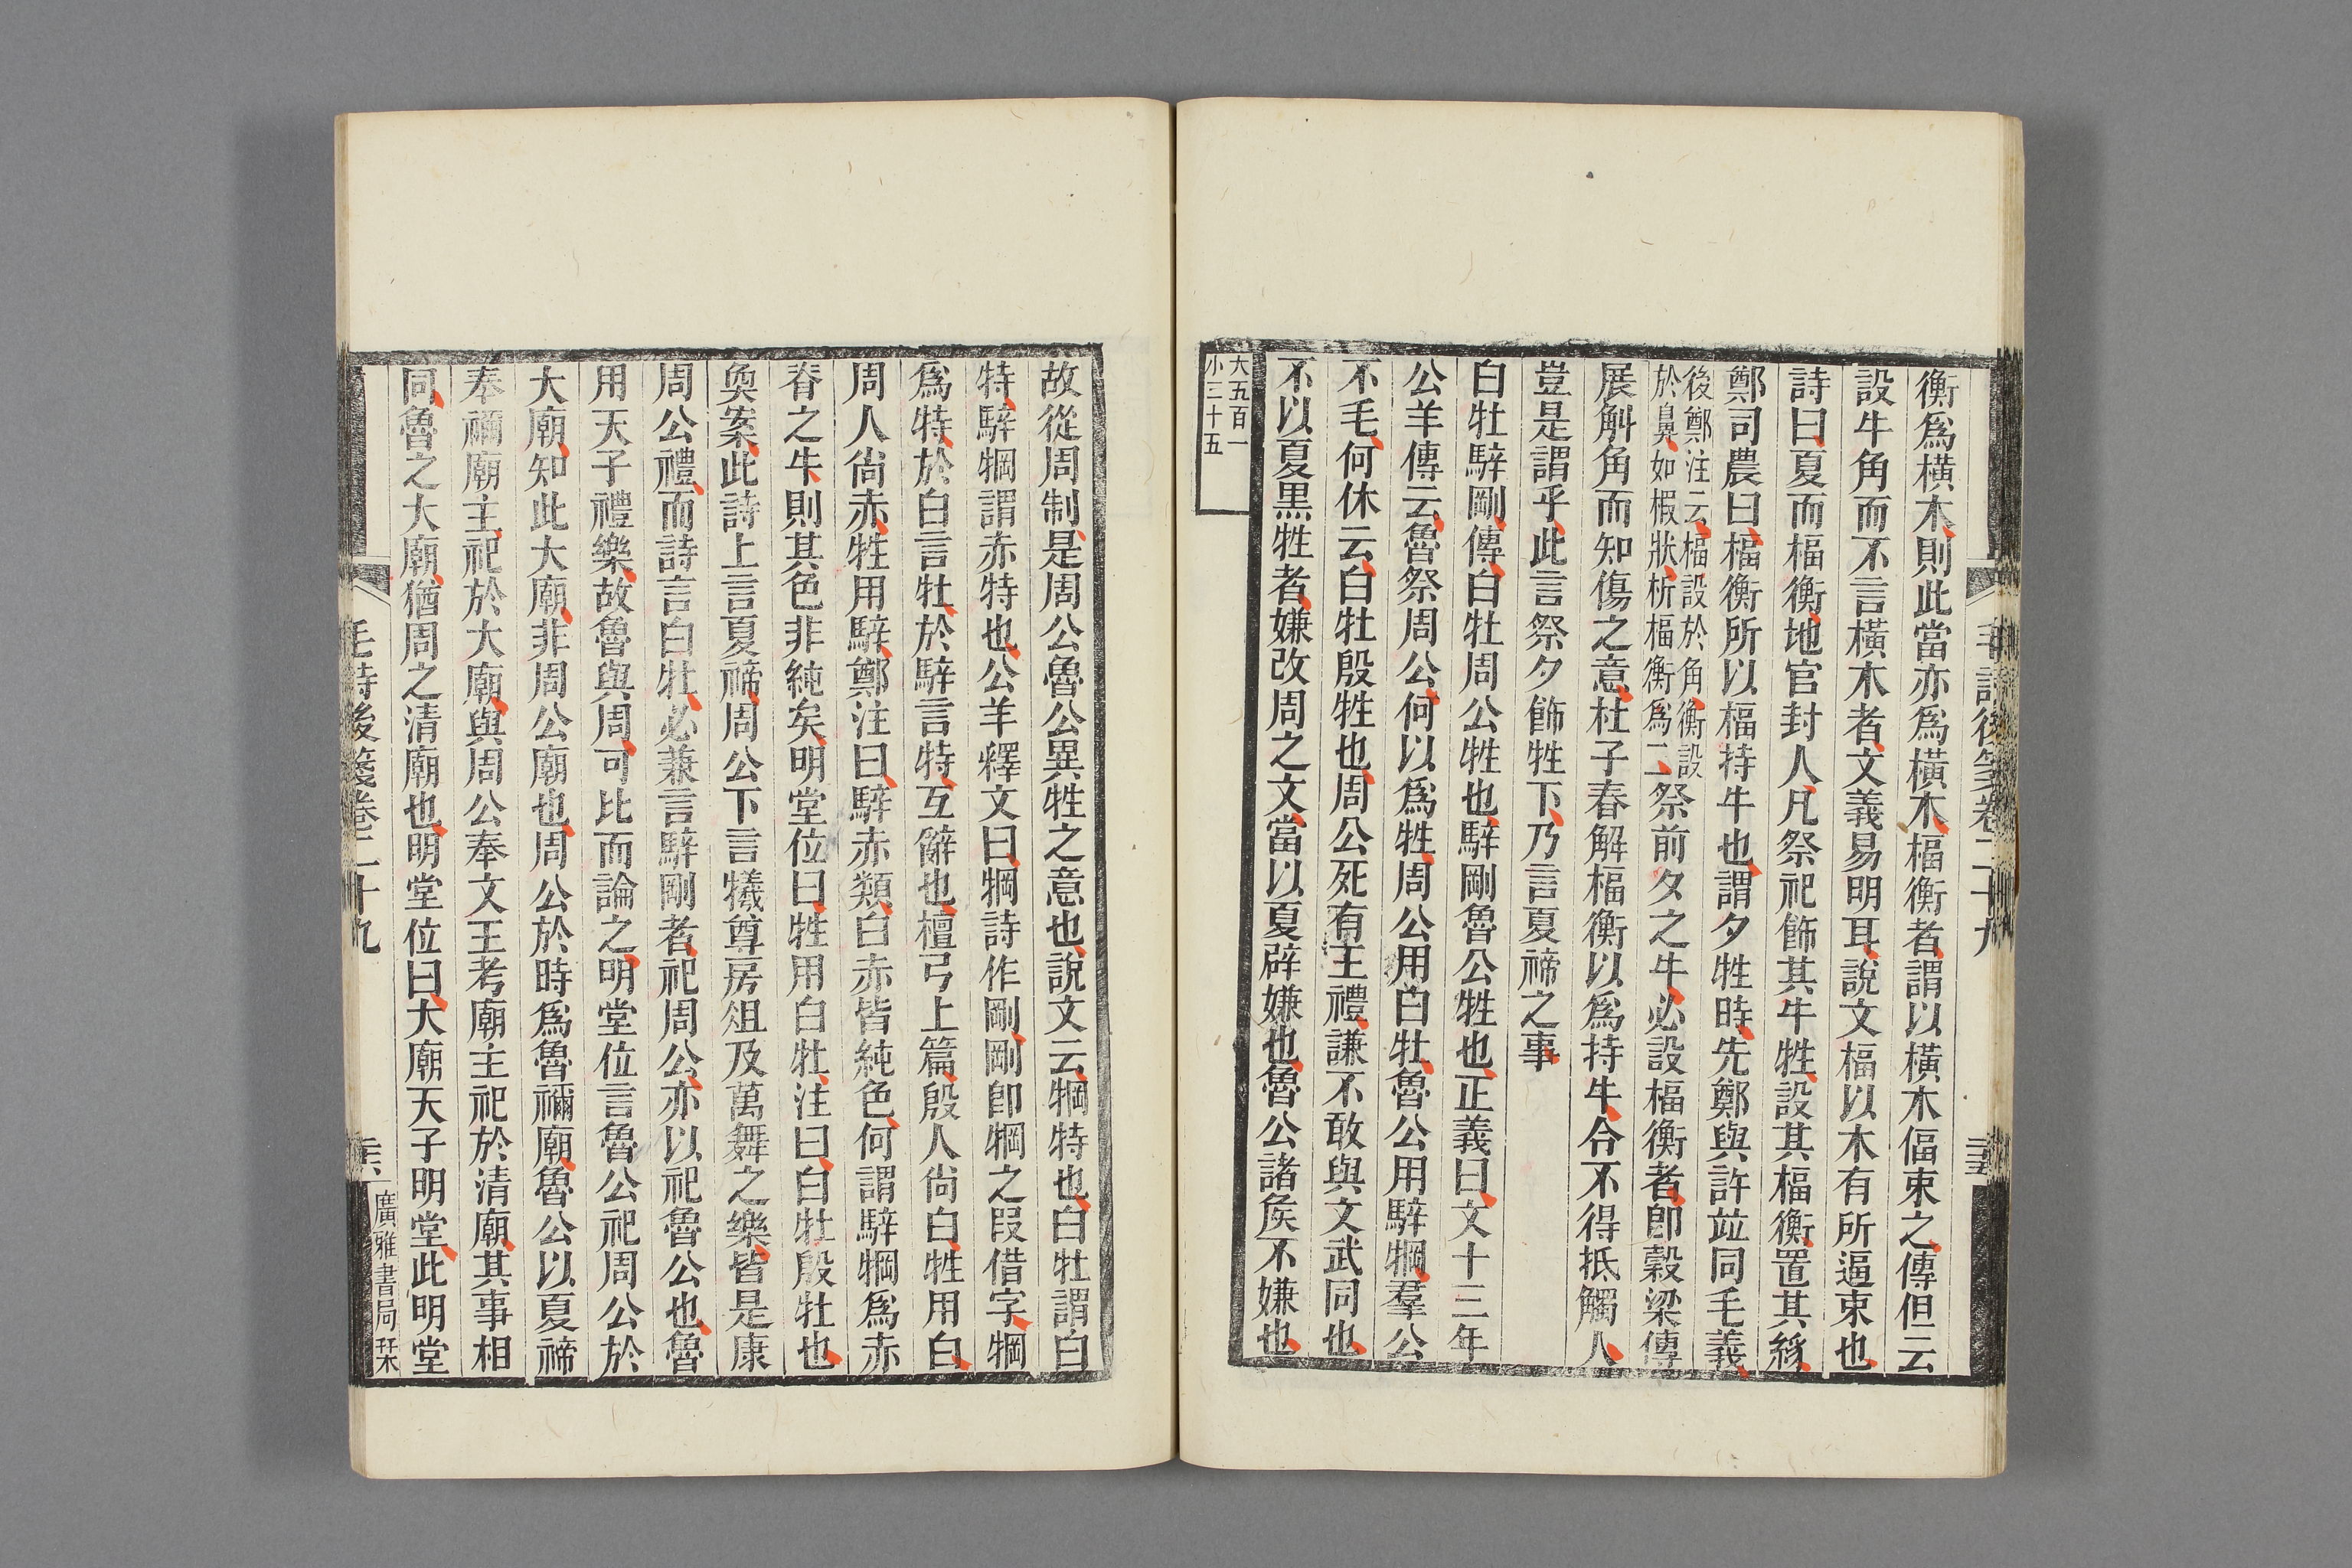 衡爲橫木則此當亦爲橫木楅衡者謂以橫木偪束之傳但云
設牛角而不言橫木者文義易明耳說文楅以木有所逼束也
詩曰夏而楅衡地官封人凡祭祀飾其牛牲設其楅衡置其絼
鄭司農曰楅衡所以楅持牛也謂夕牲時先鄭與許竝同毛義
後鄭注云楅設於角衡設
於鼻如椵狀析楅衡爲二
祭前夕之牛必設楅衡者卽穀梁傳
展斛角而知傷之意杜子春解楅衡以爲持牛令不得抵觸人
豈是謂乎此言祭夕飾牲下乃言夏禘之事
白牡騂剛傳白牡周公牲也騂剛魯公牲也正義曰文十三年
公羊傳云魯祭周公何以爲牲周公用白牡魯公用騂犅羣公
不毛何休云白牡殷牲也周公死有王禮謙不敢與文武同也
不以夏黑牲者嫌改周之文當以夏辟嫌也魯公諸矦不嫌也
大五百一
小三十五
故從周制是周公魯公異牲之意也說文云犅特也白牡謂白
特騂犅謂赤特也公羊釋文曰犅詩作剛剛卽犅之叚借字犅
爲特於白言牡於騂言特互辭也檀弓上篇殷人尙白牲用白
周人尙赤牲用騂鄭注曰騂赤類白赤皆純色何謂騂犅爲赤
脊之牛則其色非純矣明堂位曰牲用白牡注曰白牡殷牡也
奐案此詩上言夏禘周公下言犧尊房俎及萬舞之樂皆是康
周公禮而詩言白牡必兼言騂剛者祀周公亦以祀魯公也魯
用天子禮樂故魯與周可比而論之明堂位言魯公祀周公於
大廟知此大廟非周公廟也周公於時爲魯禰廟魯公以夏禘
奉禰廟主祀於大廟與周公奉文王考廟主祀於清廟其事相
同魯之大廟猶周之清廟也明堂位曰大廟天子明堂此明堂
毛詩後箋卷二十九
廣雅書局栞